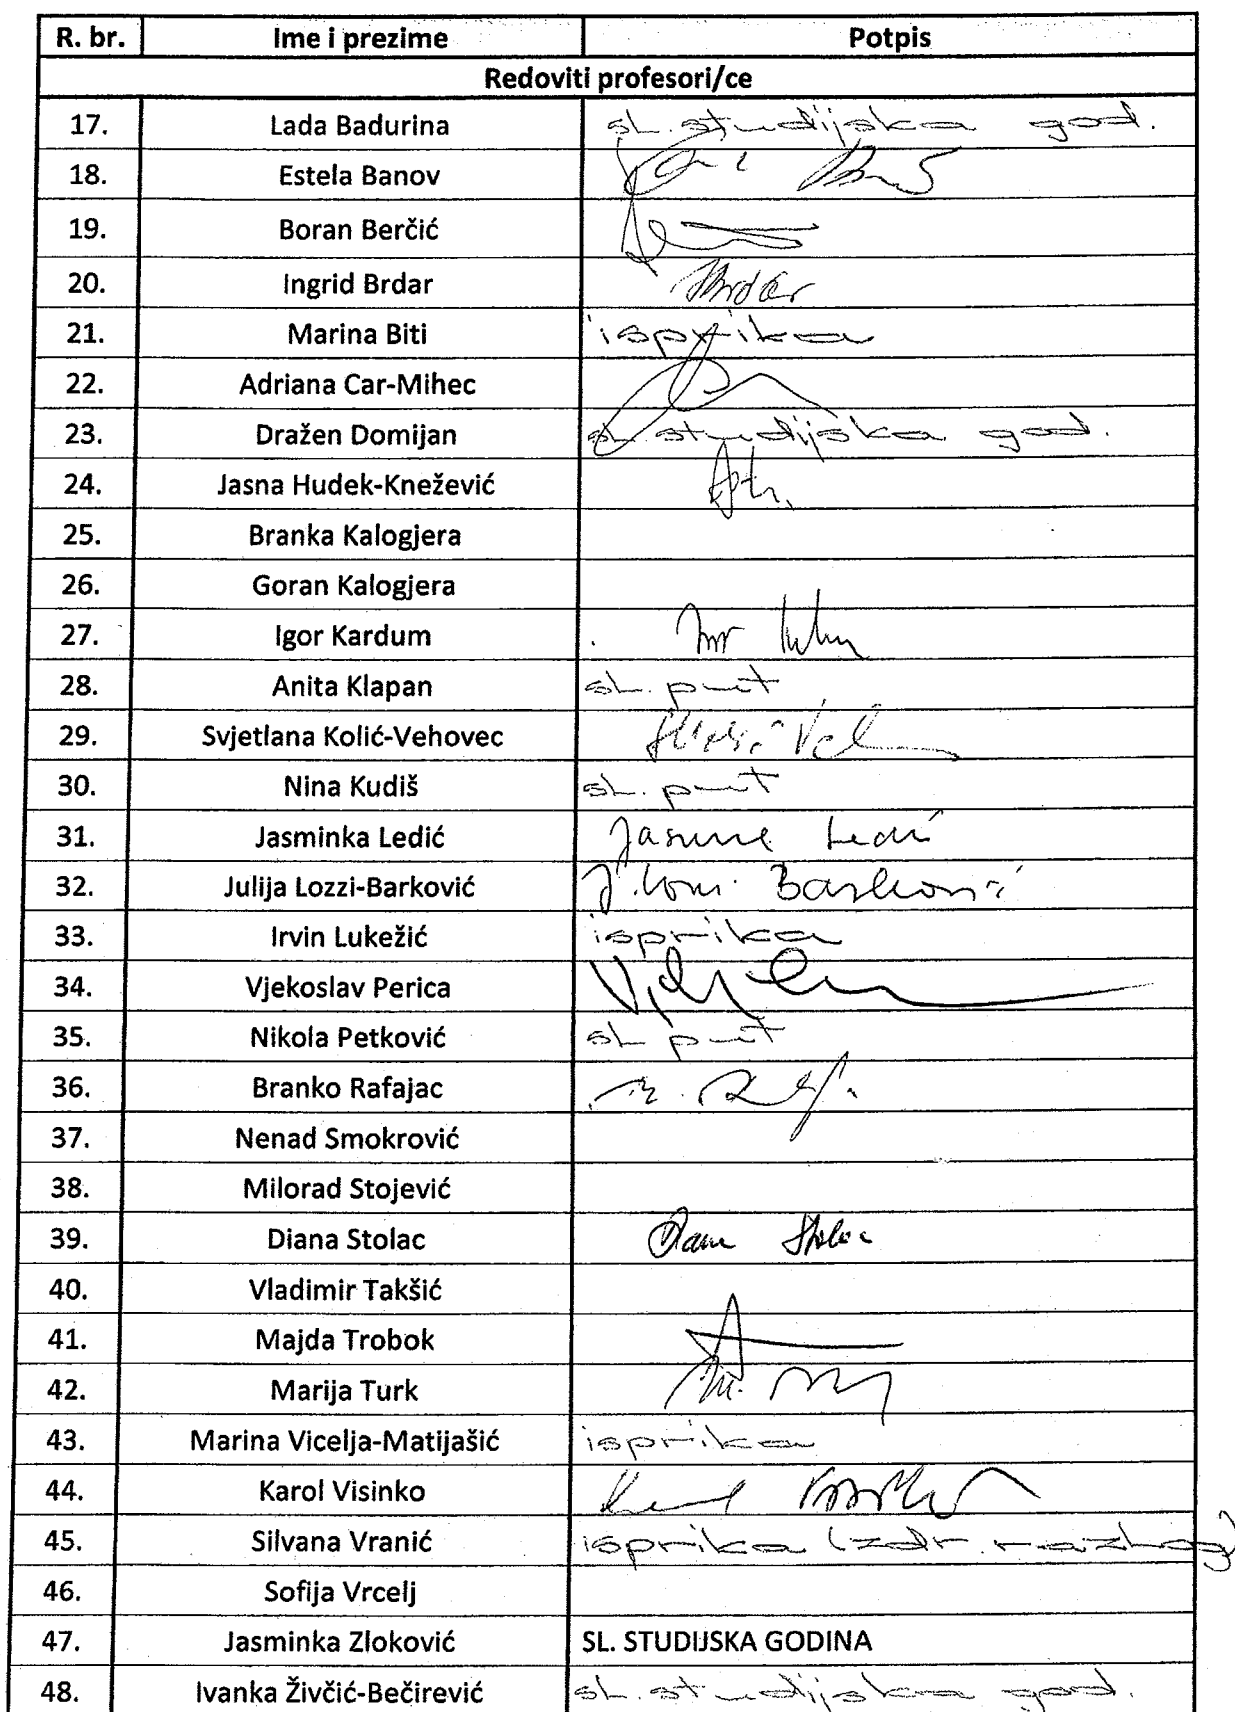 R. br. Ime i prezime Potpis
Redoviti profesori/ce
17. Lada Badurina sl. studijska god.
18. Estela Banov
19. Boran Berčić
20. Ingrid Brdar Brdar
21. Marina Biti isprika
22. Adriana Car-Mihec
23. Dražen Domijan sl. studijska god.
24. Jasna Hudek-Knežević
25. Branka Kalogjera
26. Goran Kalogjera
27. Igor Kardum
28. Anita Klapan sl. put
29. Svjetlana Kolić-Vehovec
30. Nina Kudiš sl. put
31. Jasminka Ledić
32. Julija Lozzi-Barković
33. Irvin Lukežić isprika
34. Vjekoslav Perica
35. Nikola Petković sl. put
36. Branko Rafajac
37. Nenad Smokrović
38. Milorad Stojević
39. Diana Stolac
40. Vladimir Takšić
41. Majda Trobok
42. Marija Turk
43. Marina Vicelja-Matijašić isprika
44. Karol Visinko
45. Silvana Vranić isprika (zdr. razlog)
46. Sofija Vrcelj
47. Jasminka Zloković SL. STUDIJSKA GODINA
48. Ivanka Živčić-Bečirević sl. studijska god.